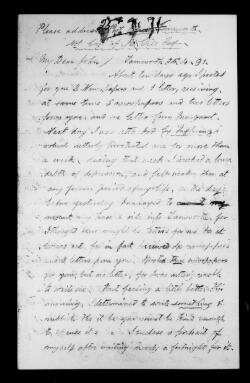 Please address
My Dear John Tamworth
About ten days ago I posted
for you 2 Newspapers and 1 letter, receiving
at same time 5 newspapers and two letters
from you, and one letter from
Next day I was attacked by
which utterly prostrated me for more than
a week, during that week I reached a lower
depth of depression, and felt weaker than at
any former period of my life, on the day
before yesterday I managed to
mount my horse & ride into Tamworth, for
I thought there might be letters for me to at
home and, for in fact I received six newspapers
and 2 letters from you. I posted three newspapers
for you, but no letter, for I was utterly unable
to write one. And feeling a little better this
morning, I determined to write something &
enclose it. I enclose a portrait of
myself after waiting nearly a fortnight for it.